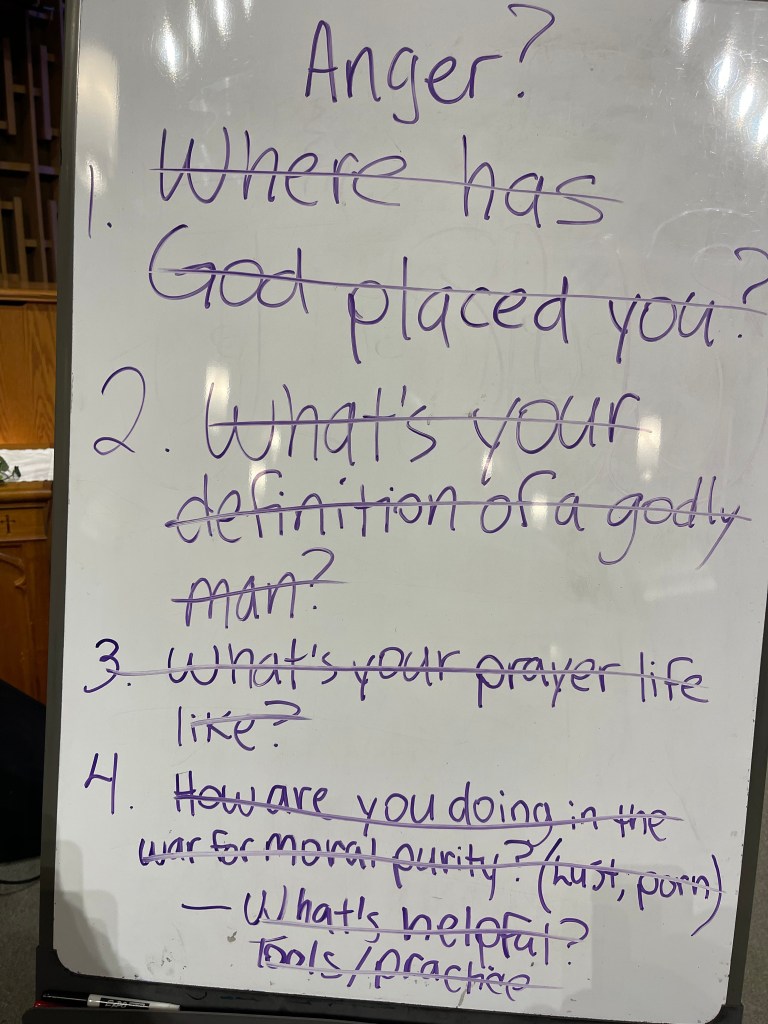 Anger?
1. Where has
God placed you?
2. What's your
definition of a godly
man?
3. What's your prayer life
like?
4. How are you doing in the
war for moral purity? (Lust, porn)
— What's helpful?
Tools/practice